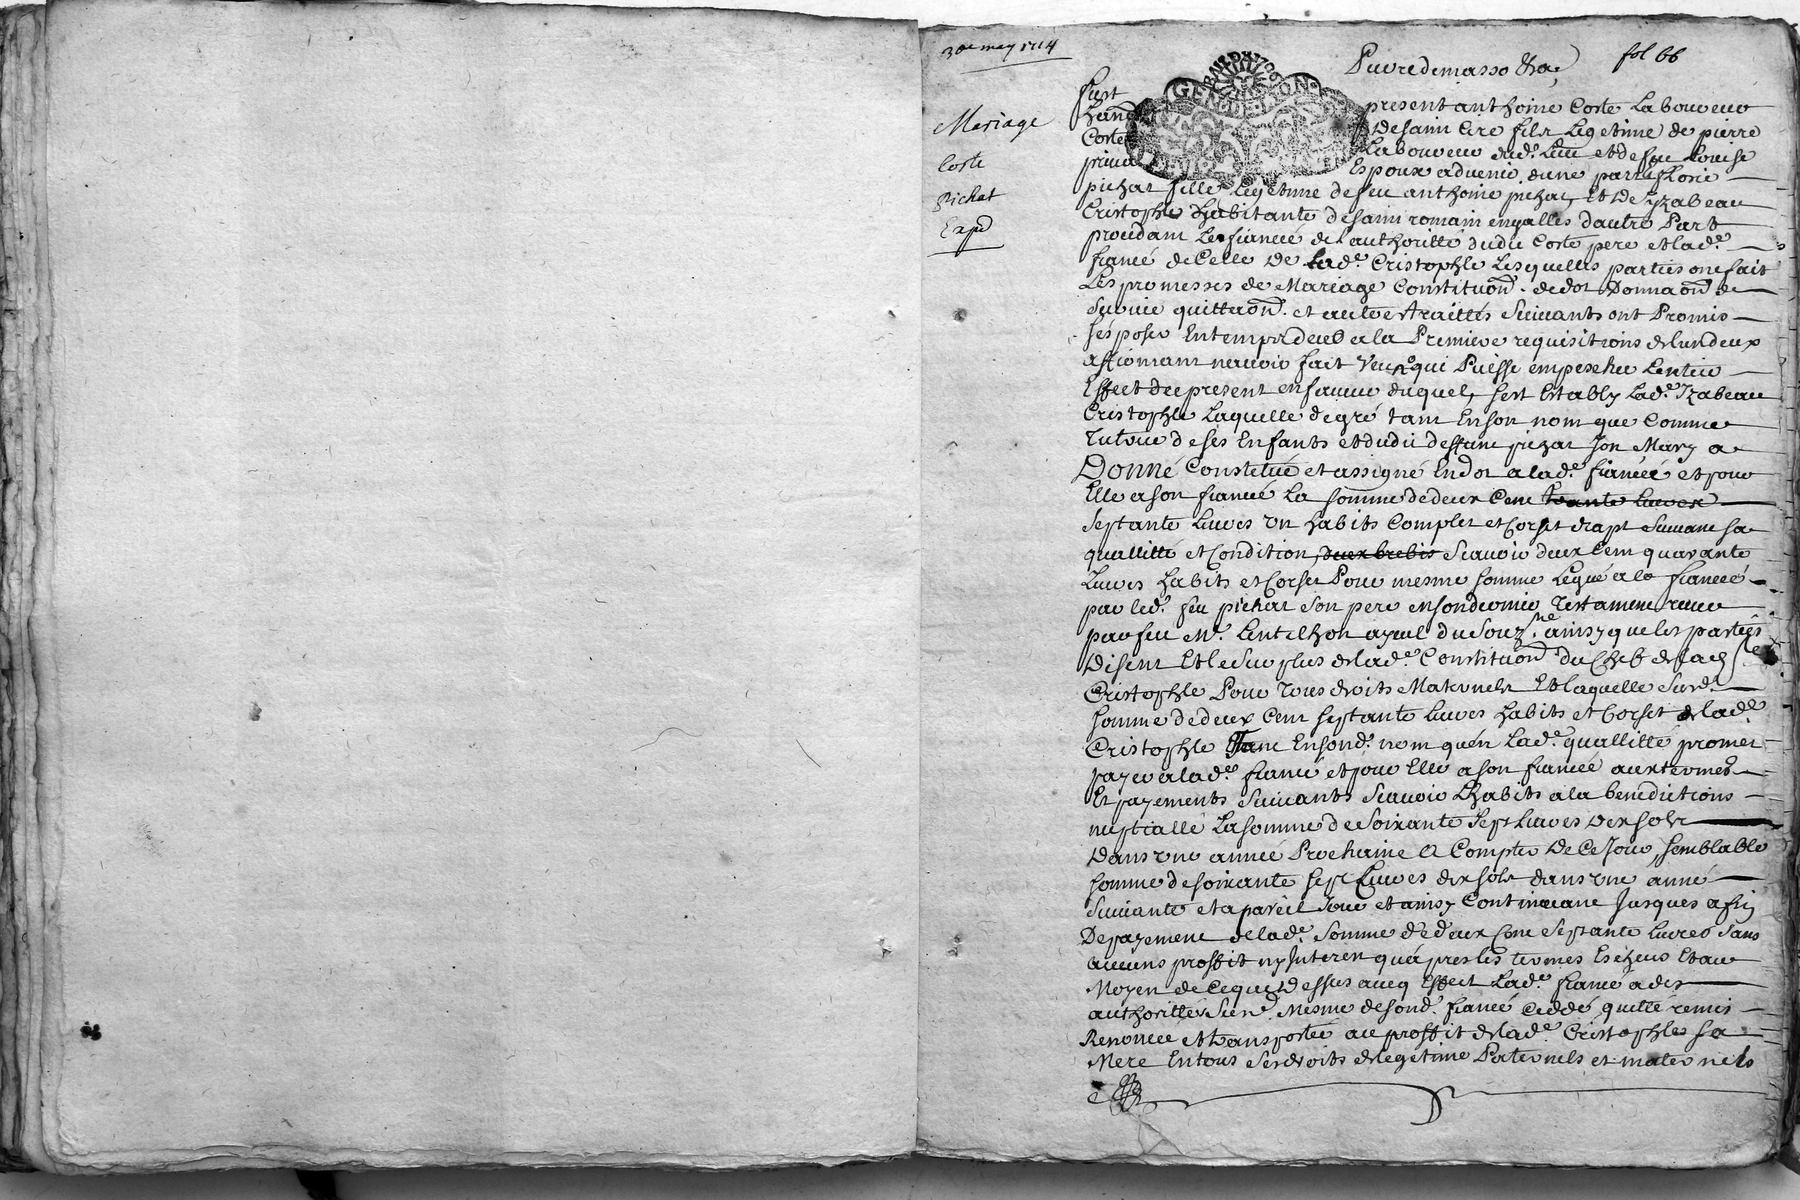 3e may 1714
fol 66
Mariage
Coste
Pichat
Expd
fust present anthoine Coste Laboureur
habitant desaint Cire fils Legetime de pierre
Coste Laboureur dud. Lieu et defue Louise
Espoux aduenir dune part
pichat fille Legetime defeu anthoine pichat, Et De yzabeau
Cristophle habitante desaint romain engalles dautre Part
procedant Le fiancé de lauthoritté dudit Coste pere et lad.e
fiancé deCelle De Lad.e Cristophle Lesquelles parties ont fait
Les promesses de Mariage Constitution. dedot Donnaon de
Suruie quittaon. et autres traittés Suiuants ont Promis
sesposer Entemps deub a la Premiere requisitions delundeux
affirmant nauoir fait qui Puisse empescher Lentier
Effect du present enfaueur duquel, sest Estably Lad.e Izabeau
Cristophle Laquelle degré tant Enson nom que Comme
Tutrice deses Enfants et dudit deffunt pichat son Mary a
Donné Constitué et assigné Endot alad.e fiancée et pour
Elle ason fiancé La somme dedeux Cent trante Liures
septante Liures Vn habits Complet et Corset drapt Suiuant sa
quallitté et Condition, deux brebis Scauoir deux Cent quarante
Liures habits et Corset Pour mesme somme Legué ala fiancée
par led. feu pichat son pere ensondernier Testament receu
par feu Mr. Lentilhon ayeul du Souz.né ainsy que les parties
Disent Et le Surplus delad.e Constituon du Chef delad.e
Cristophle Pour Tous droits Maternels Et laquelle Sud.e
somme dedeux Cent septante Liures habits et Corset delad.e
Cristophle Tant Ensond. nom quén Lad.e quallitté promet
payer alad.e fiancé et pour Elle ason fiancé aux termes
Et payements Suiuants Scauoir Lhabits ala benedictions
nuptialle Lasomme deSoixante Sept Liures dix sols
Dans vne année Prochaine a Compter De Ce Jour, semblable
somme desoixante sept Liures dix sols dans vne anné
Suiuante et apareil Jour et ainsy Continuant Jusques afin
Depayement delad.e Somme dedeux Cent Septante Liures Sans
aucuns proffit ny Interest quápres les termes Escheus Et au
Moyen de Cequedessus aueq Effect Lad.e fiancé ades
authorittés Susd. Mesme desond. fiancé Ceddé quitté remis
Renoncé et transporté au proffit delad.e Cristophle sa
Mere Entous Sesdroits delegetime Paternels et maternels